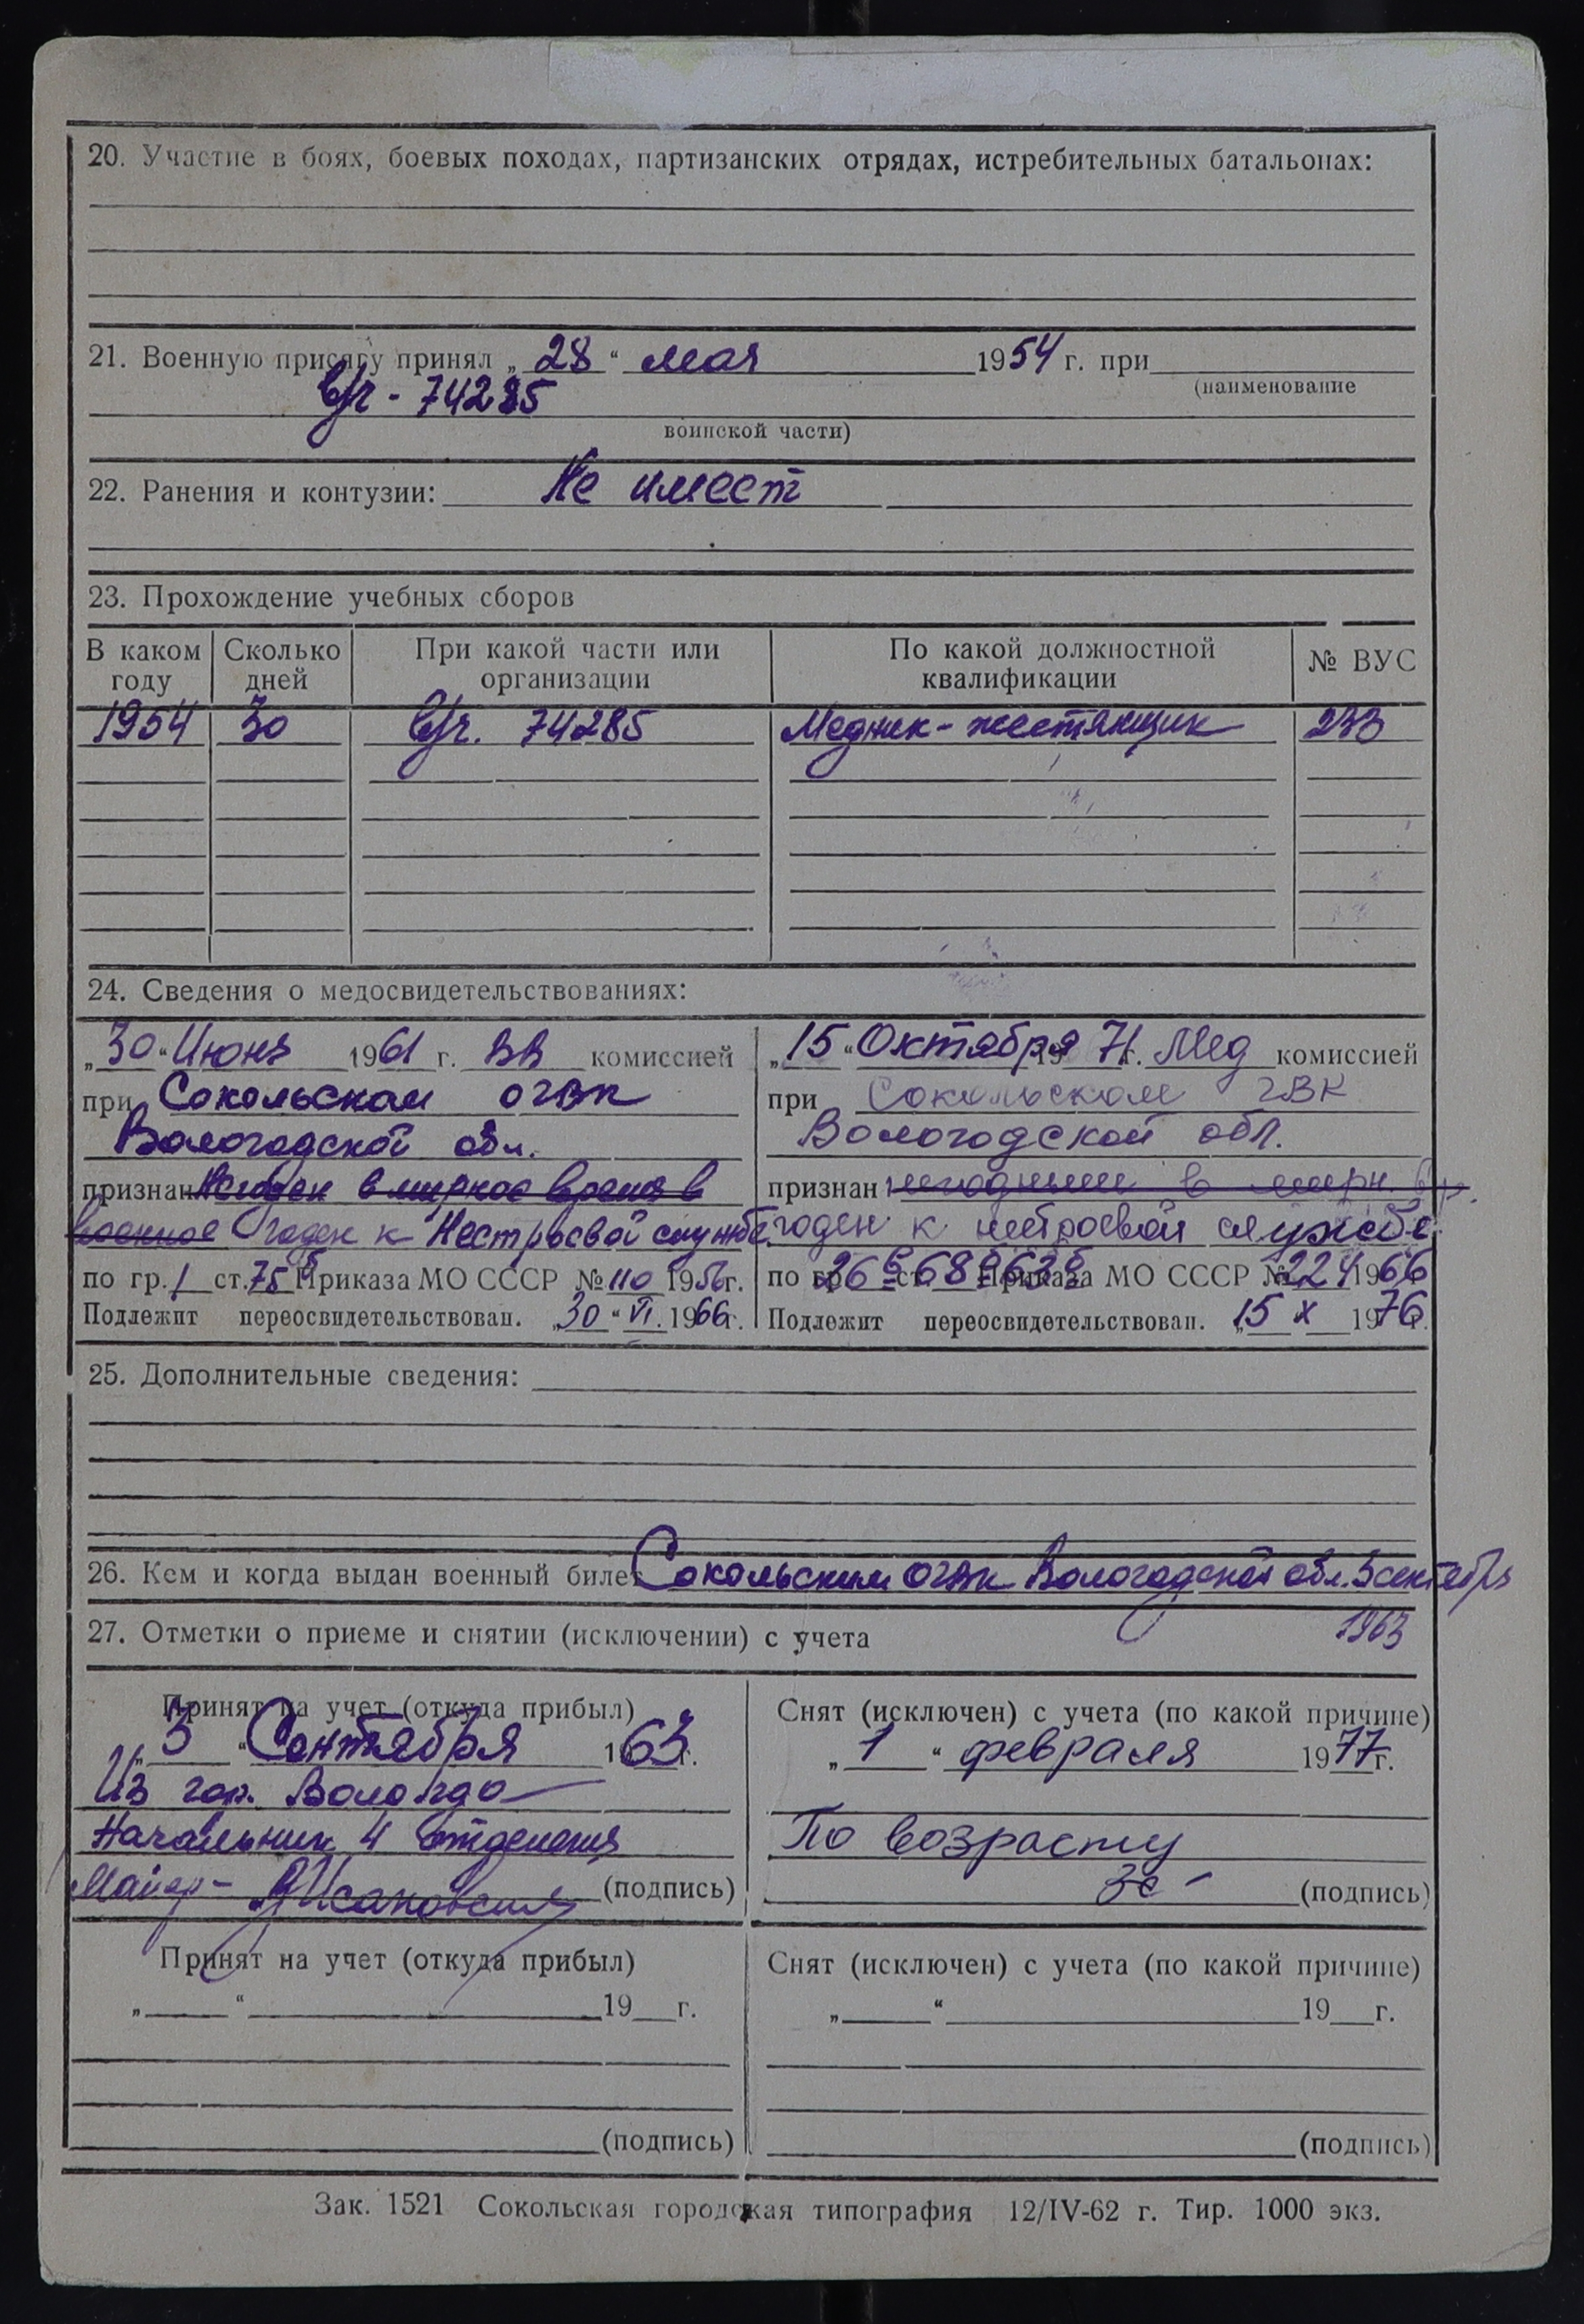 20. Участие в боях, боевых походах, партизанских отрядах, истребительных батальонах:
21. Военную присягу принял „28“ мая 1954 г. при
(наименование
в/ч - 74285
воинской части)
22. Ранения и контузии: Не имеет
23. Прохождение учебных сборов
В каком году Сколько дней При какой части или организации По какой должностной квалификации № ВУС
1954 30 в/ч. 74285 Медник-жестянщик 233
24. Сведения о медосвидетельствованиях:
„30“ Июня 1961 г. ВВ комиссией
при Сокольском ОГВК
Вологодской обл.
признан Не годен в мирное время в
военное годен к Нестроевой службе
по гр. 1 ст. 75 Приказа МО СССР № 110 1956 г.
Подлежит переосвидетельствован. „30“ VI. 1966 г.
„15“ Октября 1971 г. Мед комиссией
при Сокольском ГВК
Вологодской обл.
признан негодным в мирн. вр.
годен к нестроевой службе
по гр. ст. Приказа МО СССР № 224 1966
Подлежит переосвидетельствован. „15 X 1976 г.
25. Дополнительные сведения:
26. Кем и когда выдан военный билет Сокольским ОГВК Вологодской обл. 5 сентября
1963
27. Отметки о приеме и снятии (исключении) с учета
Принят на учет (откуда прибыл)
„3“ Сентября 1963 г.
Из гор. Вологда
Начальник 4 отделения
Майор (подпись)
Снят (исключен) с учета (по какой причине)
„1“ февраля 1977 г.
По возрасту
(подпись)
Принят на учет (откуда прибыл)
„ “ 19 г.
(подпись)
Снят (исключен) с учета (по какой причине)
„ “ 19 г.
(подпись)
Зак. 1521 Сокольская городская типография 12/IV-62 г. Тир. 1000 экз.